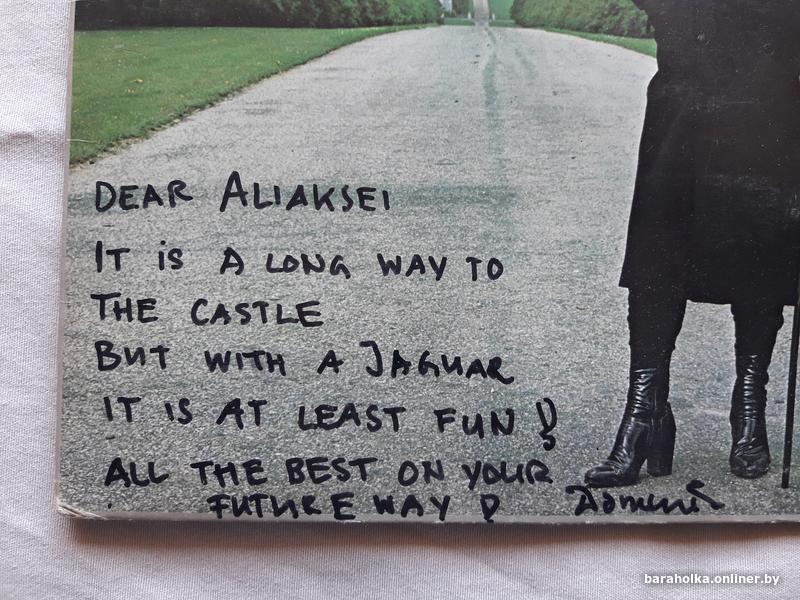 DEAR ALIAKSEI
IT IS A LONG WAY TO
THE CASTLE
BUT WITH A JAGUAR
IT IS AT LEAST FUN !
ALL THE BEST ON YOUR
FUTURE WAY !
baraholka.onliner.by